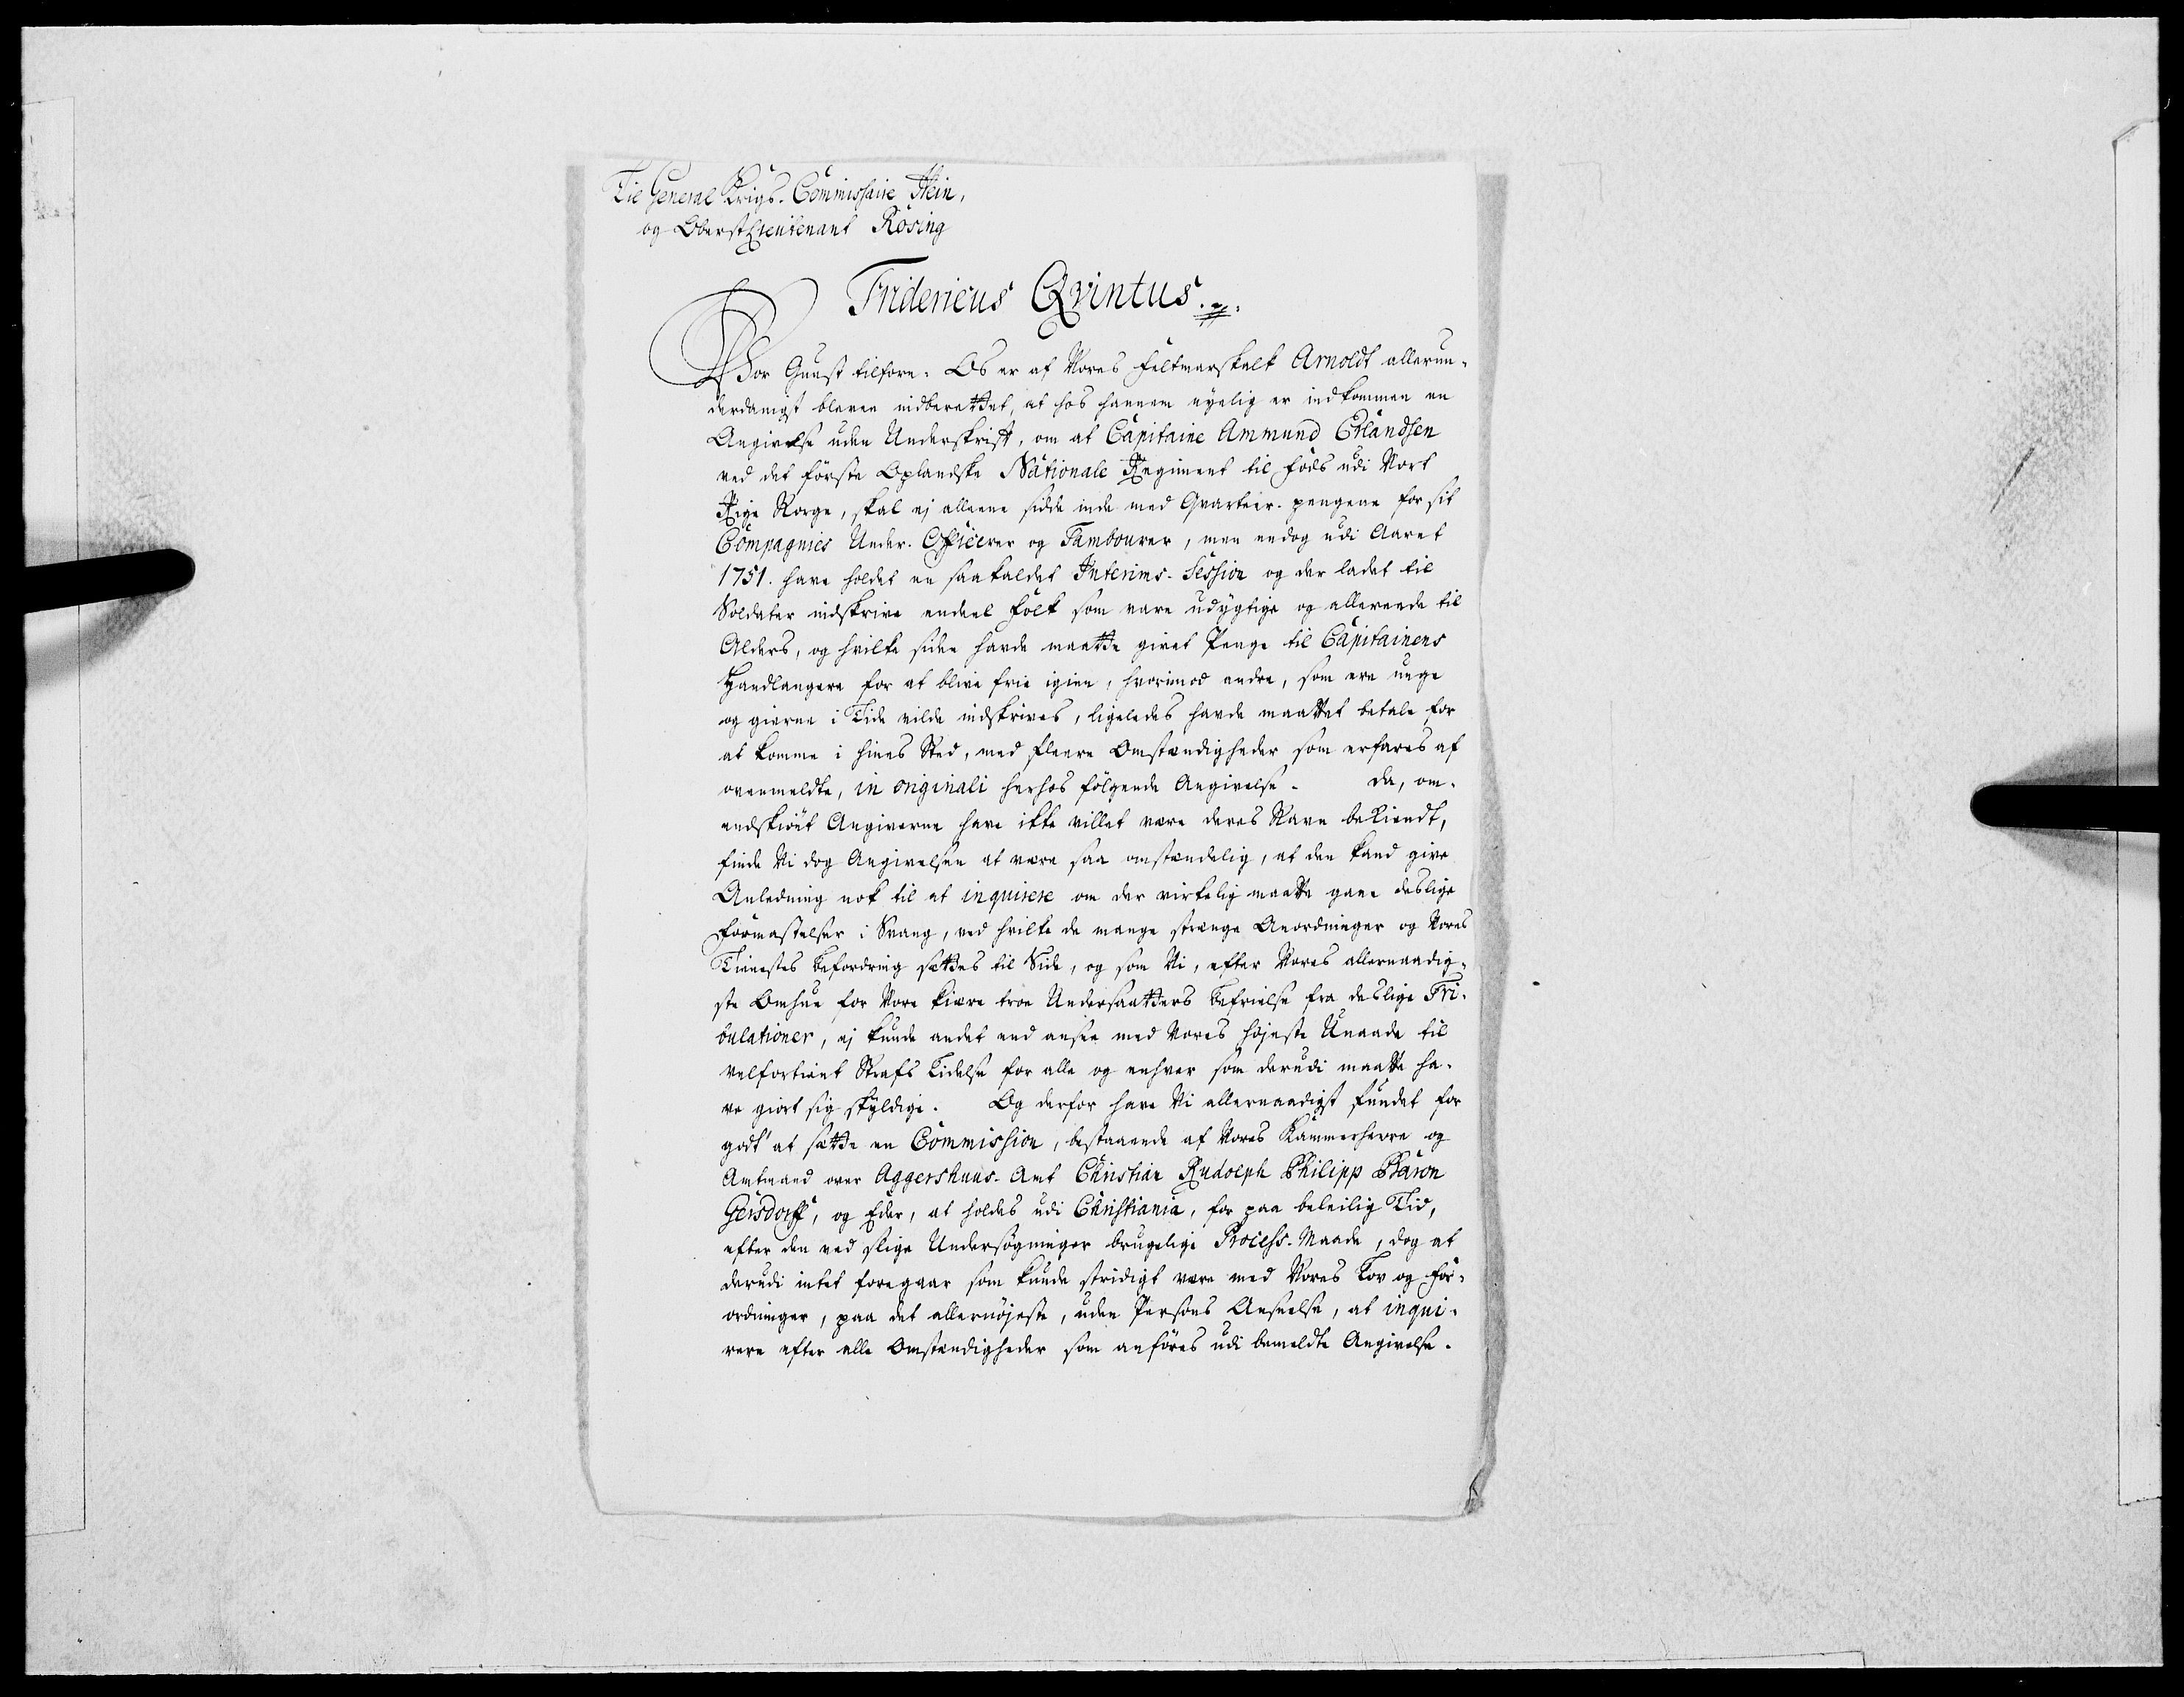 Til General Krigs-Commissaire Hein,
og Oberstlieutenant Rösing
Fridericus Qvintus.
Vor Gunst tilforn. Os er af Vores Feltmarskalk Arnoldt allerun-
derdanigst bleven indberettet, at hos hannem nyelig er indkommen en
Angivelse uden Underskrift, om at Capitaine Ammund Erlandsen
ved det förste Oplandske Nationale Regiment til Fods udi Vort
Rige Norge, skal ej alleene sidde inde med Qvarteer-pengene for sit
Compagnies Under-Officerer og Tambourer, men endog udi Aaret
1751. have holdet en saakaldet Interims-Session og der ladet til
Soldater indskrive endeel Folk som vare udygtige og allereede til
Alders, og hvilke siden havde maatte givet Penge til Capitainens
Handlangere for at blive frie igien, hvorimod andre, som ere unge
og gierne i Tide vilde indskrives, ligeledes havde maattet betale for
at komme i hines Sted, med fleere Omstændigheder som erfares af
ovenmeldte, in originali herhos fölgende Angivelse. Da, om-
endskiönt Angiverne have ikke villet være deres Navn bekiendt,
finde Vi dog Angivelsen at være saa omstændelig, at den kand give
Anledning nok til at inquirere om der virkelig maatte gaae deslige
Formastelser i Svang, ved hvilke de mange strænge Anordninger og Vores
Tienestes Befordring sættes til Side, og som Vi, efter Vores allernaadig-
ste Omhue for Vore kiære troe Undersaatters Befrielse fra deslige Tri-
bulationer, ej kunde andet end ansee med Vores höjeste Unaade til
velfortient Strafs Lidelse for alle og enhver som derudi maatte ha-
ve giort sig skyldige. Og derfor have Vi allernaadigst fundet for
godt at sætte en Commission, bestaaende af Vores Kammerherre og
Amtmand over Aggershuus-Amt Christian Rudolph Philipp Baron
Gersdorff, og Eder, at holdes udi Christiania, for paa beleilig Tid,
efter den ved slige Undersögninger brugelige Process-Maade, dog at
derudi intet foregaar som kunde stridigt være med Vores Lov og For-
ordninger, paa det allernöjeste, uden Persons Anseelse, at inqui-
rere efter alle Omstændigheder som anföres udi bemeldte Angivelse.